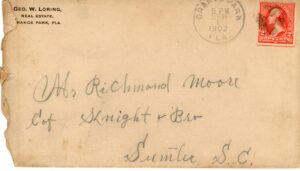 GEO. W. LORING,
REAL ESTATE,
ORANGE PARK, FLA.
ORANGE PARK
5 PM
1902
FLA.
Mr Richmond Moore
C of Knight & Bro
Sumter S.C.